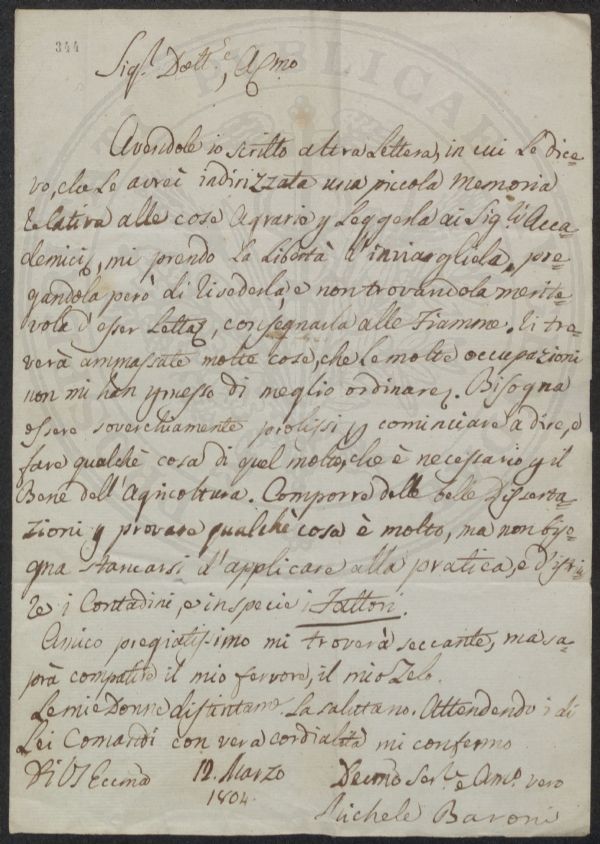 344
Sig.r Dott.e, A.mo
Avendole io scritto altra Lettera, in cui Le dice-
vo, che Le avrei indirizzata una piccola Memoria
Relativa alle cose Agrarie p Leggerla ai Sig.ri Acca-
demici, mi prendo La Libertà d'inviargliela, pre-
gandola però di Rivederla, e non trovandola merite-
vole d'esser Letta, consegnarla alle Fiamme. Vi tro-
verà ammassate molte cose, che le molte occupazioni
non mi han pmesso di meglio ordinare. Bisogna
essere soverchiamente prolissi p cominciare a dire, e
fare qualchè cosa di quel molto, che è necessario p il
Bene dell'Agricoltura. Comporre delle belle Disserta-
zioni p provare qualchè cosa è molto, ma non biso-
gna stancarsi d'applicare alla pratica, e d'istrui-
re i Contadini, e inspecie i Fattori.
Amico pregiatissimo mi troverà seccante, ma sa-
prà compatire il mio fervore, il mio Zelo.
Le mie Donne distintam.e La salutano. Attendendo i di
Lei Comandi con vera cordialità mi confermo
Di VS Eccma 12. Marzo Devmo Ser.e e Am.o vero
1804.
Michele Baroni